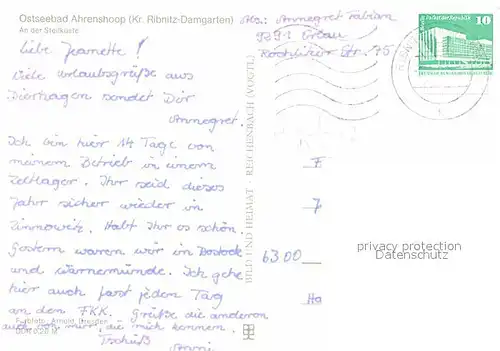 Ostseebad Ahrenshoop (Kr. Ribnitz-Damgarten)
An der Steilküste
Liebe Jeanette!
Viele Urlaubsgrüße aus
Dierhagen sendet Dir
Annegret.
Ich bin hier 14 Tage von
meinem Betrieb in einem
Zeltlager. Ihr seid dieses
Jahr sicher wieder in
Zinnowitz. Habt Ihr es schön.
Gestern waren wir in Rostock
und Warnemünde. Ich gehe
hier auch fast jeden Tag
an den FKK. Grüße die anderen
auch von mir, die mich kennen.
Tschüß
Farbfoto: Arnold, Dresden
BILD UND HEIMAT REICHENBACH (VOGTL)
Abs.: Annegret Fabian
Str. 75
10
F
7
6300
Ha
privacy protection
Datenschutz